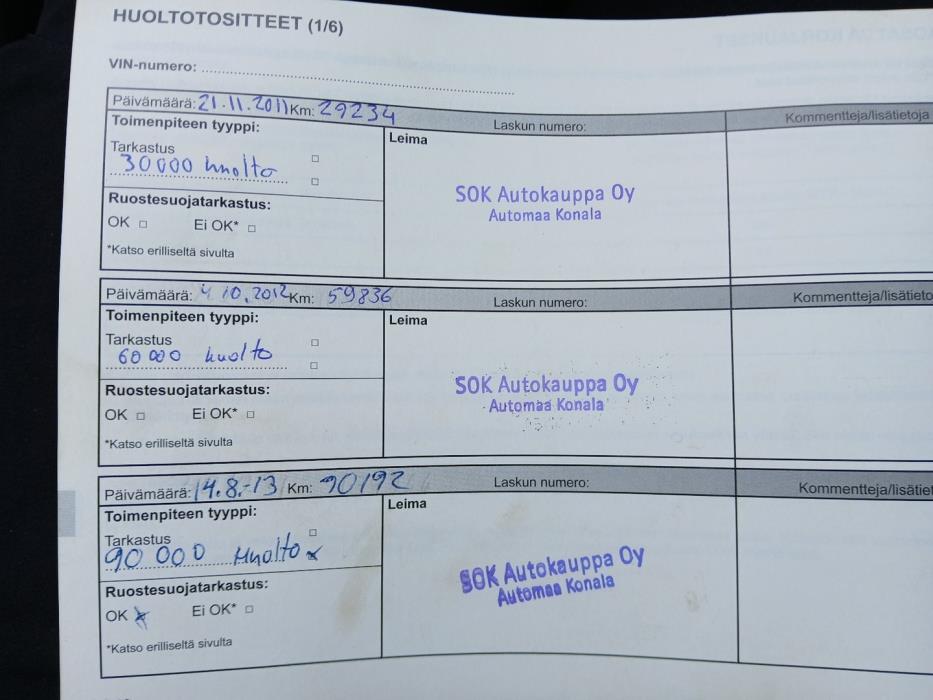 HUOLTOTOSITTEET (1/6)
VIN-numero:
Päivämäärä: 21.11.2011 Km: 29234 Laskun numero: Kommentteja/lisätietoja
Toimenpiteen tyyppi: Leima
Tarkastus
30000 huolto
SOK Autokauppa Oy
Automaa Konala
Ruostesuojatarkastus:
OK Ei OK*
*Katso erilliseltä sivulta
Päivämäärä: 4.10.2012 Km: 59836 Laskun numero: Kommentteja/lisätieto
Toimenpiteen tyyppi: Leima
Tarkastus
60 000 huolto
SOK Autokauppa Oy
Automaa Konala
Ruostesuojatarkastus:
OK Ei OK*
*Katso erilliseltä sivulta
Päivämäärä: 14.8.-13 Km: 90192 Laskun numero: Kommentteja/lisätiet
Toimenpiteen tyyppi: Leima
Tarkastus
90 000 Huolto x
SOK Autokauppa Oy
Automaa Konala
Ruostesuojatarkastus:
OK x Ei OK*
*Katso erilliseltä sivulta